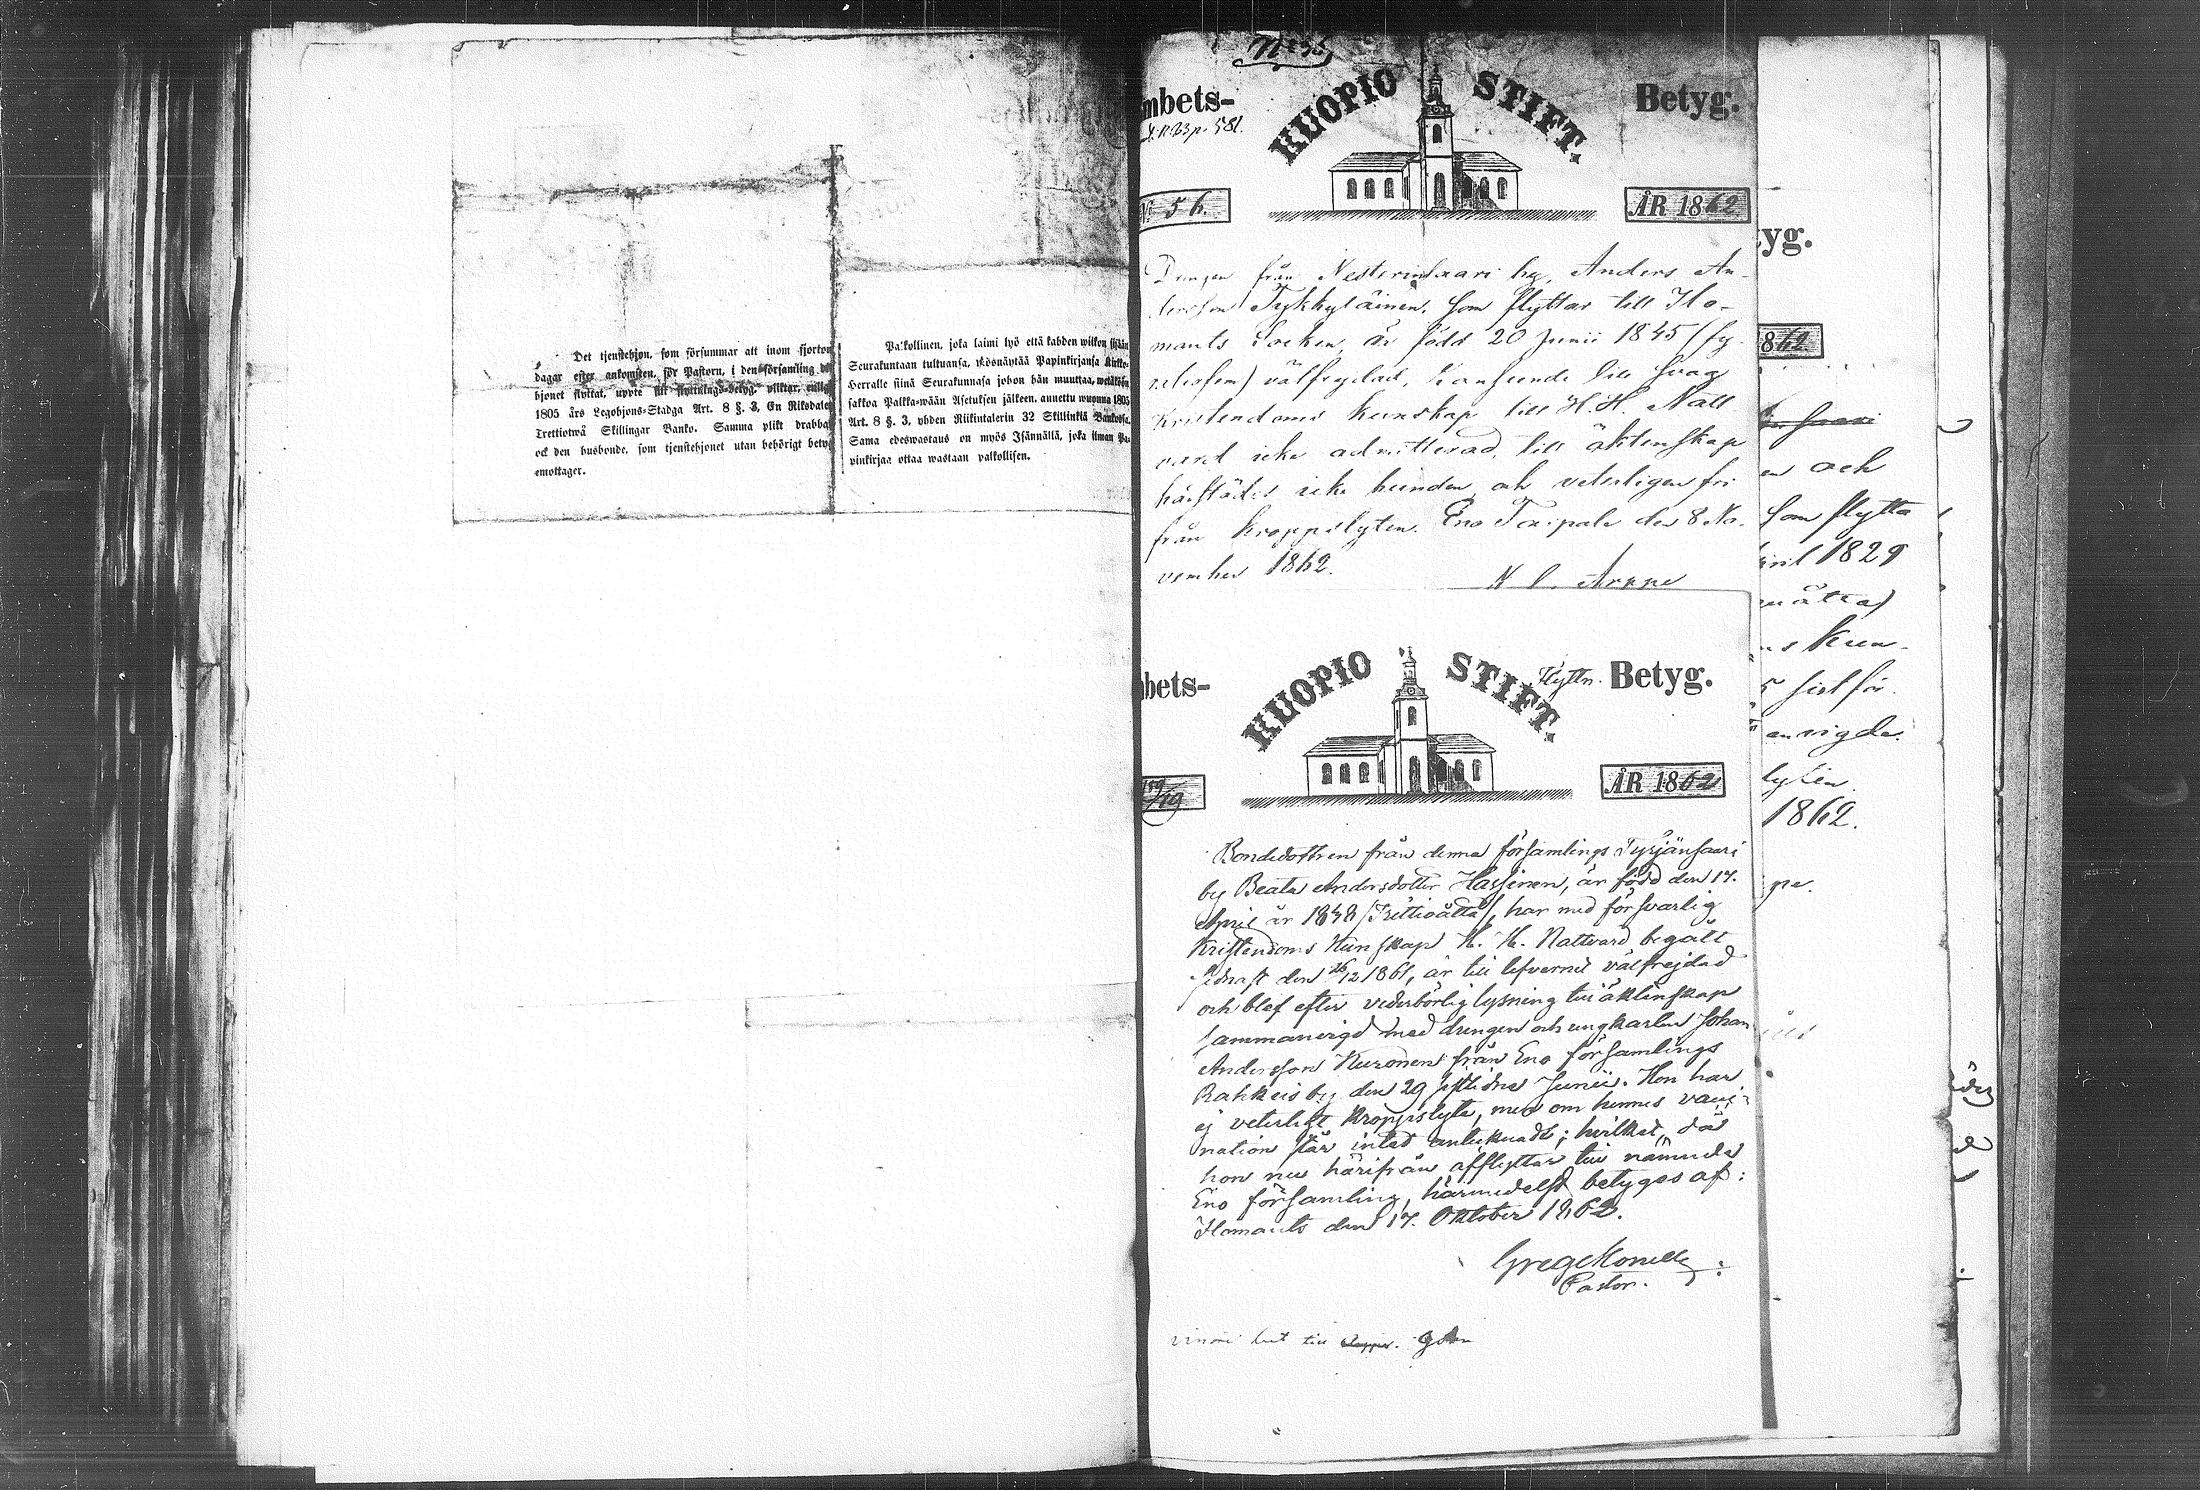 Det tjenstehjon, som försummar att inom fjorton
dagar efter ankomsten, för Pastorn, i den församling
hjonet flyttat, uppte sitt flyttnings-betyg, pliktar, enligt
1805 års Legohjons-Stadga Art. 8 §. 3, En Riksdaler
Trettiotwå Skillingar Banko. Samma plikt drabbar
ock den husbonde, som tjenstehjonet utan behörigt betyg
emottager.
Palkollinen, joka laimi lyö että kahden wiikon sisään
Seurakuntaan tultuansa, ylösnäyttää Papinkirjansa Kirko-
Herralle siinä Seurakunnasa johon hän muuttaa, wetäköön
sakkoa Palkka-wään Asetuksen jälkeen, annettu wuonna 1805
Art. 8 §. 3, yhden Riikintalerin 32 Skillinkiä Bankossa.
Sama edeswastaus on myös Isännällä, joka ilman Pa-
pinkirjaa ottaa wastaan palkollisen.
mbets-
KUOPIO STIFT.
Betyg.
p. 581.
No 56.
ÅR 1862
Drengen från Nesterinsaari by, Anders An-
dersson Tykkyläinen, som flyttar till Ilo-
mants Socken, är född 20 Junii 1845 (fy-
rationfem) välfrejdad, Kansende till svag
Kristendoms kunskap till H. H. Natt
vard icke admitterad, till äktenskap
härstädes icke bunden och veterligen fri
från kroppslyten. Eno Taipale den 8 No-
vember 1862.
N. O. Arppe
bets-
KUOPIO STIFT.
Flyttn. Betyg.
ÅR 1862
Bondedottren från denna församlings Tyrjänsaari
by Beata Andersdotter Hassinen, är född den 17.
April år 1838 (Trettioåtta), har med försvarlig
Kristendoms Kunskap H. H. Nattvard begått
sednast den 26/12 1861, är till lefvernet välfrejdad
och blef efter vederbörlig lysning till äktenskap
sammanvigd med drengen och ungkarlen Johan
Andersson Kuronen från Eno församlings
Rahkeis by den 29 sistlidne Junii. Hon har
ej veterligt kroppslyte, men om hennes vacci-
nation står intet antecknadt; hvilket, då
hon nu härifrån afflyttar till nämnde
Eno församling, härmedelst betygas af:
Ilomants den 17. Oktober 1862.
Pastor.
yg.
1862
en och
som flytta
April 1829
s kun-
sist för
lyten.
1862.